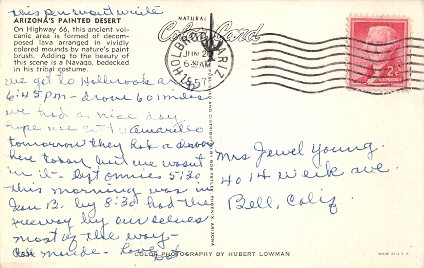 this pen wont write
ARIZONA'S PAINTED DESERT
On Highway 66, this ancient volcanic area is formed of decomposed lava arranged in vividly colored mounds by nature's paint brush. Adding to the beauty of this scene is a Navajo, bedecked in his tribal costume.
we got to Holbrook at
6:45 pm - drove 601 miles
we had a nice day
hope we get to Amarillo
tomorrow they had a
here today but we wasn't
in it - left 5:30
this morning was in
San B. by 8:30 had the
freeway by our selves
most of the way -
Love
NATURAL
Color Card
HOLBROOK ARIZ.
JUN 2
6 30 AM
1957
Mrs Jewel Young
4014 weik ave
Bell, Calif
COLOR PHOTOGRAPHY BY HUBERT LOWMAN
MADE IN U.S.A.